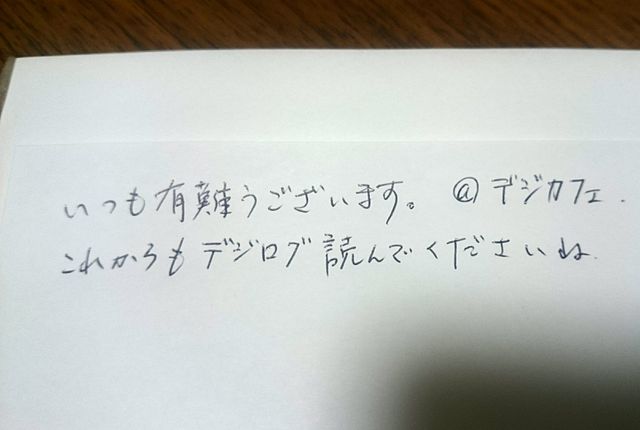 いつも有難うございます。 @デジカフェ.
これからもデジログ読んでくださいね.